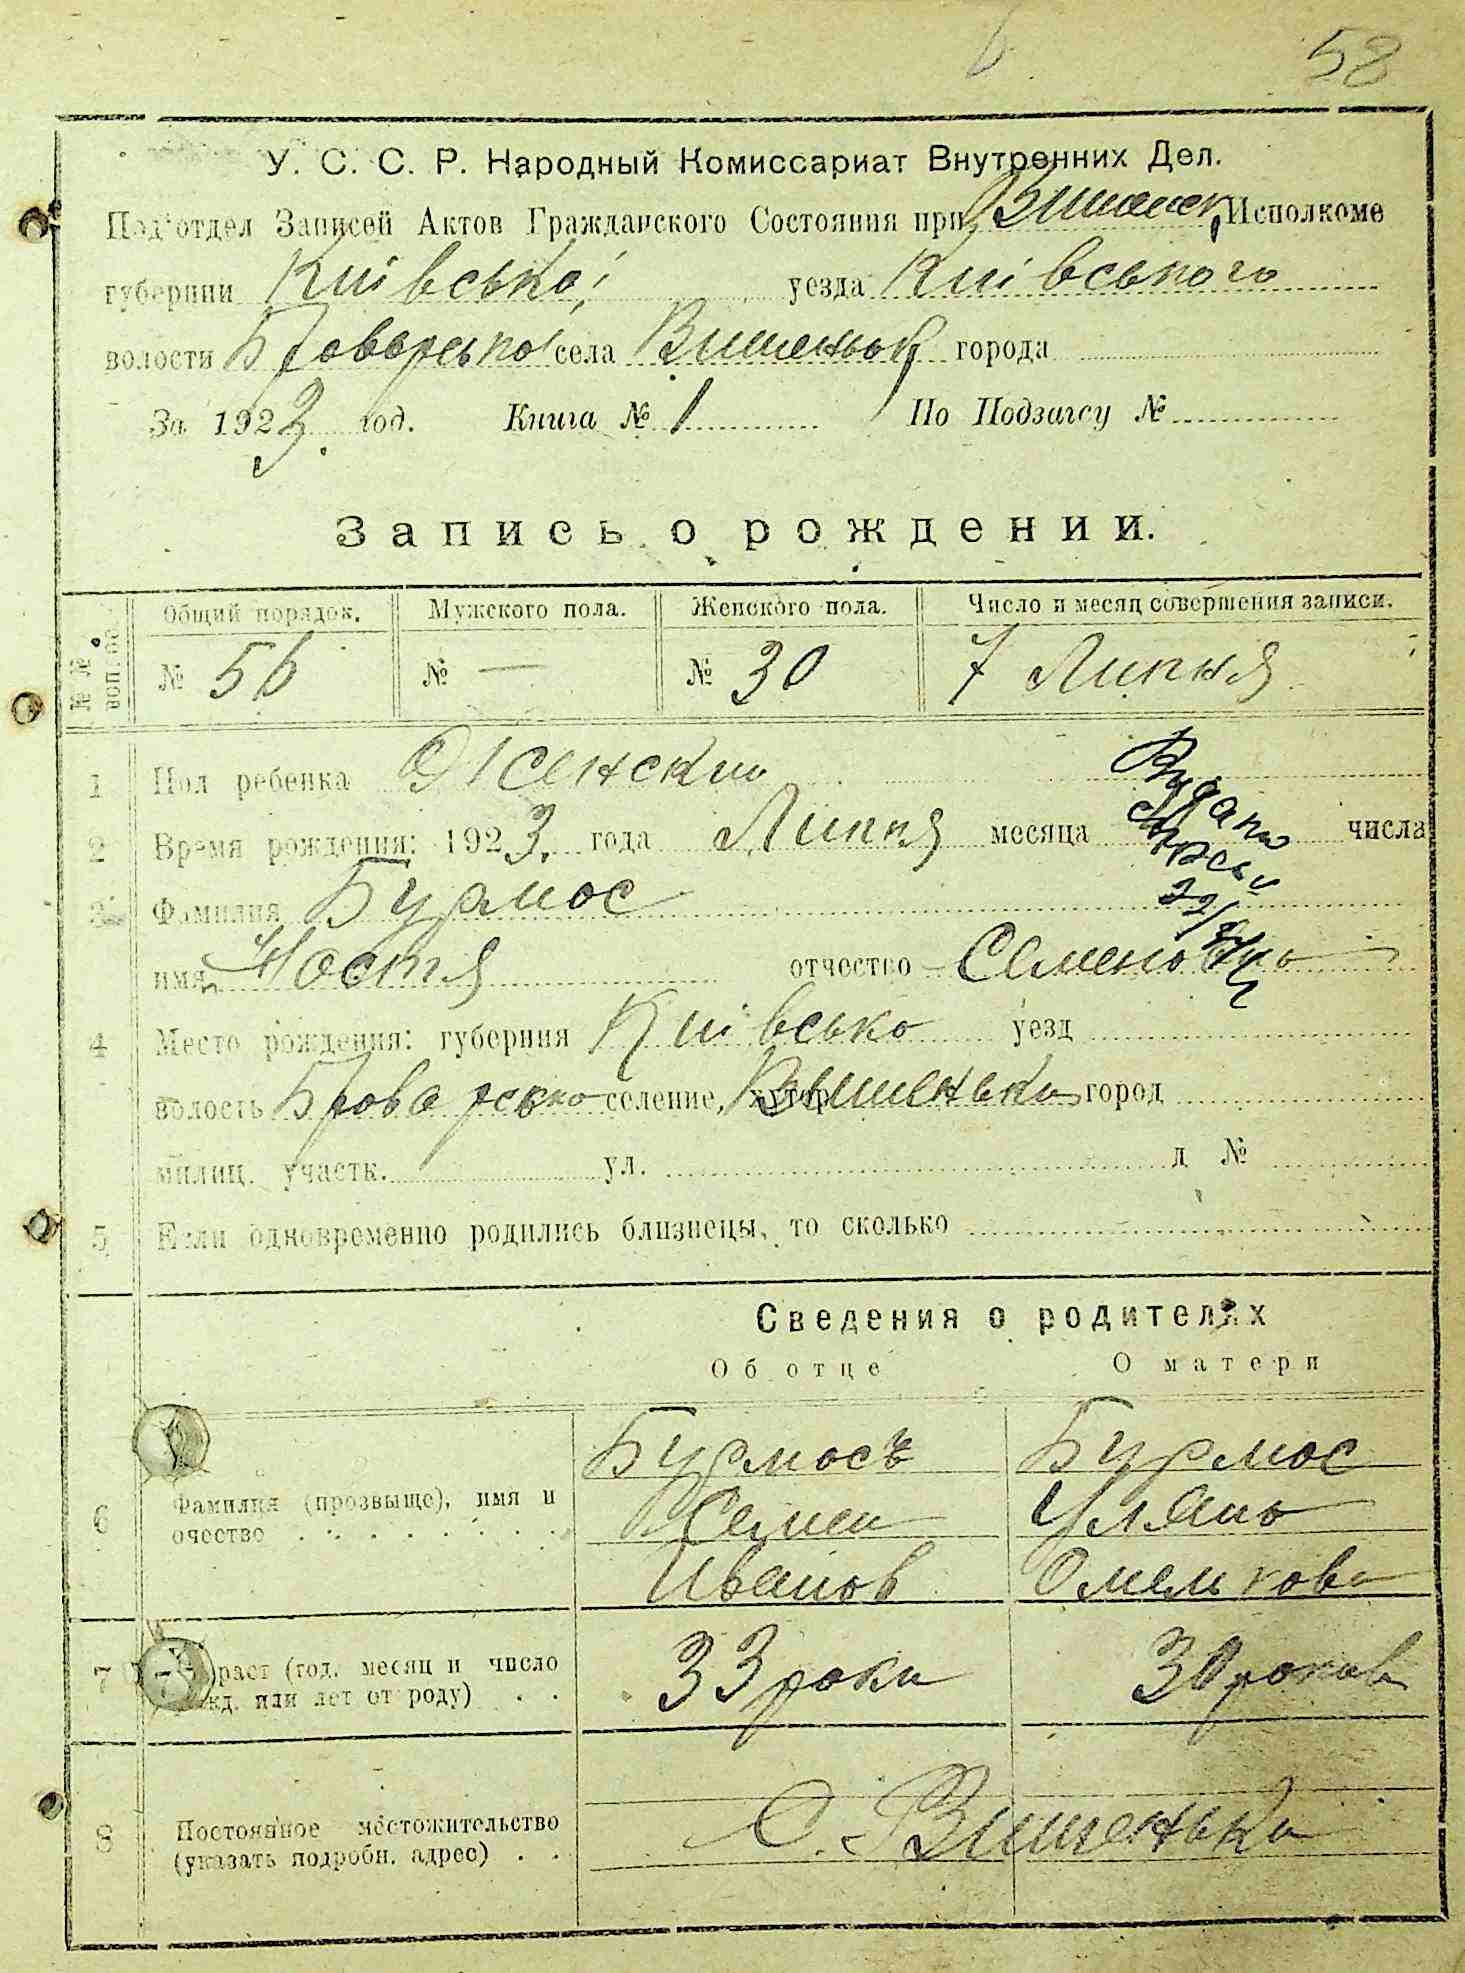 58
У. С. С. Р. Народный Комиссариат Внутренних Дел.
Под'отдел Записей Актов Гражданского Состояния при Вишенск. Исполкоме
губернии Київської уезда Київського
волости Броварської села Вишеньок города
За 1923. год. Книга № 1 По Подзагсу №
Запись о рождении.
№№ вопросов Общий порядок. Мужского пола. Женского пола. Число и месяц совершения записи.
№ 56 № — № 30 7 Липня
1 Пол ребенка Женский
2 Время рождения: 1923. года Липня месяца числа
Видано
3 Фамилия Бурмос
имя Настя отчество Семеновна
4 Место рождения: губерния Київська уезд
волость Броварська селение, хутор Вишеньки город
милиц. участк. ул. д №
5 Если одновременно родились близнецы, то сколько
Сведения о родителях
Об отце О матери
Бурмосъ Бурмос
6 Фамилия (прозвыще), имя и Семен Уляна
очество Иванов Омельков
7 Возраст (год. месяц и число 33 роки 30 років
рожд. или лет от роду)
8 Постоянное местожительство С. Вишеньки
(указать подробн. адрес)